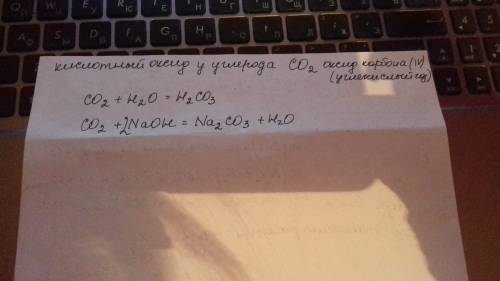 кислотный оксид у углерода CO₂ оксид корбона (IV)
(углекислый газ)
CO₂ + H₂O = H₂CO₃
CO₂ + 2NaOH = Na₂CO₃ + H₂O